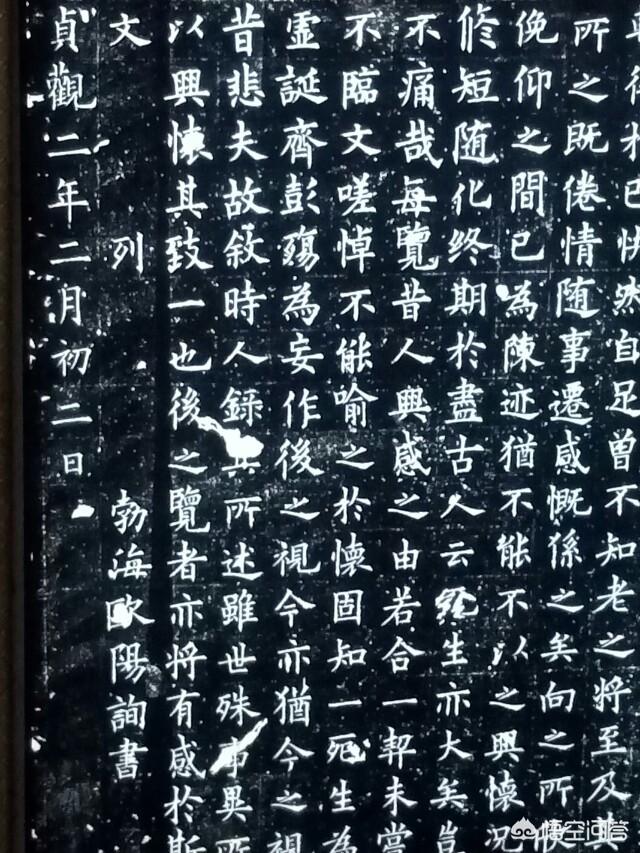 得於已快然自足曾不知老之將至及其
所之既倦情随事遷感慨係之矣向之所
俛仰之間已為陳迹猶不能不以之興懷況
修短随化終期於盡古人云死生亦大矣豈
不痛哉每覽昔人興感之由若合一契未嘗
不臨文嗟悼不能喻之於懷固知一死生為
虛誕齊彭殤為妄作後之視今亦猶今之視
昔悲夫故敘時人録其所述雖世殊事異所
以興懷其致一也後之覽者亦將有感於斯
文 列 勃海歐陽詢書
貞觀二年二月初二日
悟空问答